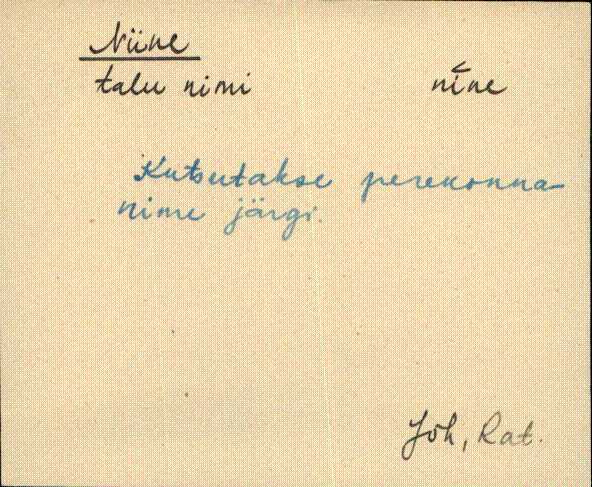 Niine
talu nimi nīne
Kutsutakse perekonna-
nime järgi.
Jõh, Rat.